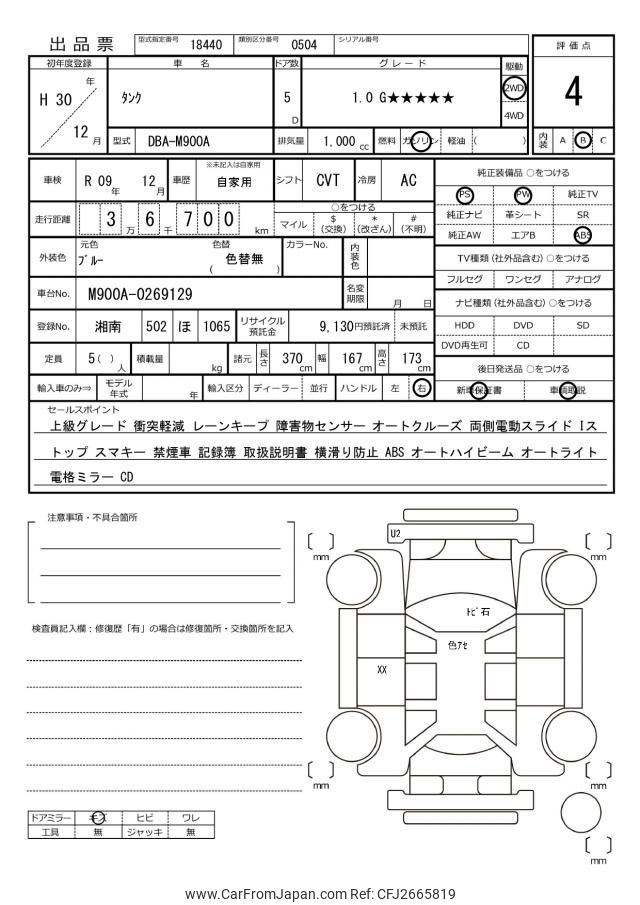 出品票 型式指定番号 18440 類別区分番号 0504 シリアル番号
評価点
4
内装 A B C
初年度登録 車名 ドア数 グレード 駆動
H 30 年 12 月
タンク
5 D
1.0 G★★★★★
2WD
4WD
型式 DBA-M900A 排気量 1,000 cc 燃料 ガソリン 軽油 ( )
車検 R 09 年 12 月 車歴 ※未記入は自家用 自家用 シフト CVT 冷房 AC
走行距離 3 6 7 0 0 万 千 km
○をつける
マイル $ (交換) * (改ざん) # (不明)
外装色 元色 ブルー 色替 ( 色替無 ) カラーNo. 内装色
車台No. M900A-0269129 名変期限 月 日
登録No. 湘南 502 ほ 1065 リサイクル預託金 9,130円預託済 未預託
定員 5( )人 積載量 kg 諸元 長さ 370 cm 幅 167 cm 高さ 173 cm
輸入車のみ⇒ モデル年式 年 輸入区分 ディーラー 並行 ハンドル 左 右
純正装備品 ○をつける
PS PW 純正TV
純正ナビ 革シート SR
純正AW エアB ABS
TV種類(社外品含む)○をつける
フルセグ ワンセグ アナログ
ナビ種類(社外品含む)○をつける
HDD DVD SD
DVD再生可 CD
後日発送品 ○をつける
新車保証書 車輌取説
セールスポイント
上級グレード 衝突軽減 レーンキープ 障害物センサー オートクルーズ 両側電動スライド Iス
トップ スマキー 禁煙車 記録簿 取扱説明書 横滑り防止 ABS オートハイビーム オートライト
電格ミラー CD
注意事項・不具合箇所
検査員記入欄：修復歴「有」の場合は修復箇所・交換箇所を記入
ドアミラー キズ ヒビ ワレ
工具 無 ジャッキ 無
U2
トビ石
色アセ
XX
[ ] mm
[ ] mm
[ ] mm
[ ] mm
[ ] mm
www.CarFromJapan.com Ref: CFJ2665819